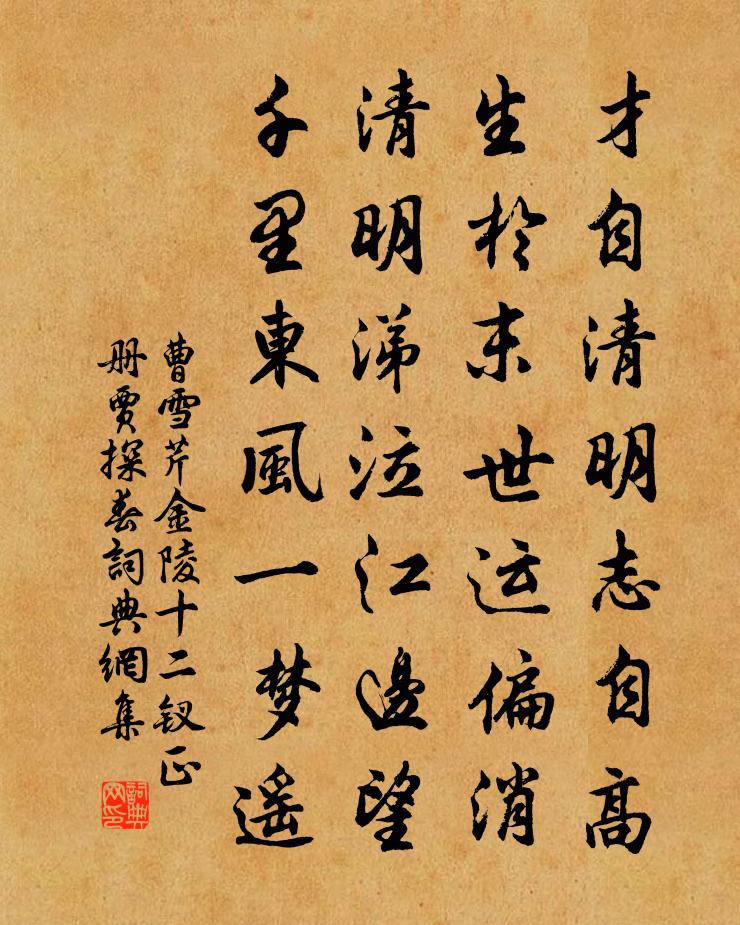 才自清明志自高
生於末世运偏消
清明涕泣江邊望
千里東風一梦遥
曹雪芹金陵十二钗正
册賈探春詞典網集
詞典
网印